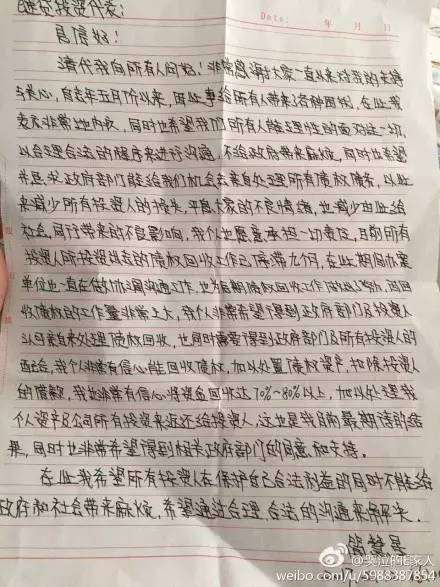 Date: 年 月 日
投资代表:
您好!
请代我向所有人问好!非常感谢大家一直以来对我的支持
与关心,自去年五月份以来,因此事给所有人带来各种困扰,在此我
表示非常地内疚,同时也希望我们所有人能理性的面对这一切,
以合理合法的程序来进行沟通,不给政府带来麻烦,同时也希望
并恳求政府部门能给我们机会去亲自处理所有债权债务,以此
来减少所有投资人的损失,平息大家的不良情绪,也减少由此给
社会,同行带来的不良影响,我个也愿意承担一切责任,目前所有
投资人所投资出去的债权回收工作已停滞九个月,在此期间办案
单位也一直在做协调沟通工作,也为后期债权回收工作 ,而回
收债权的工作量非常之大,我个人非常希望得到政府部门及投资人
认可亲自来处理债权回收,也同时需要得到政府部门及所有投资人的
配合,我个人非常有信心能回收债权,加以处置债权资产,扣除投资人
的借款,我也非常有信心将资金回收达70%~80%以上,加以处理我
个人资产及公司所有投资来返还给投资人,这也是我目前最期待的结
果,同时也非常希望得到相关政府部门的同意和支持。
在此我希望所有投资人在保护自己合法利益的同时不能给
政府和社会带来麻烦,希望通过合理,合法的沟通来解决。
@哭泣的E家人
weibo.com/u/5988387854